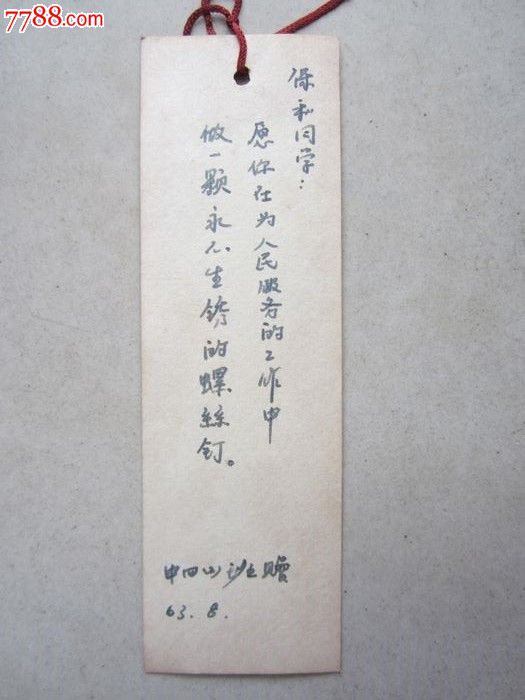 7788.com
保和同学：
愿你在为人民服务的工作中
做一颗永不生锈的螺絲釘。
中四（1）班赠
63.8.